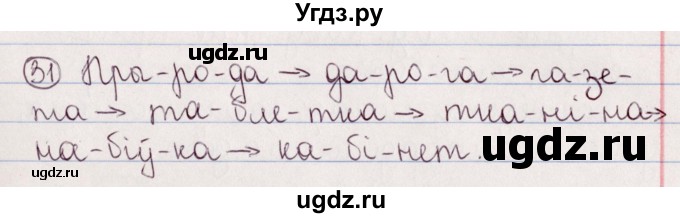 Угдз.ру
31 Пры-ро-да → да-ро-га → га-зе-
та → та-бле-тка → тка-ні-на →
на-біў-ка → ка-бі-нет.
uwgdz.ru
uwgdz.ru
uwgdz.ru
uwgdz.ru